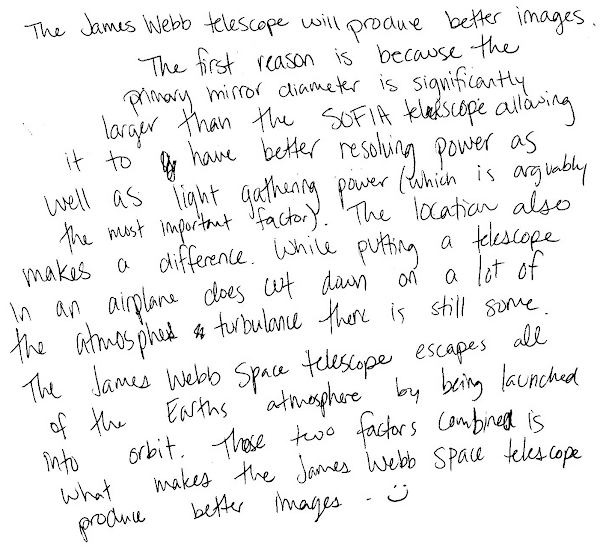 The James Webb telescope will produce better images.
The first reason is because the
primary mirror diameter is significantly
larger than the SOFIA telescope allowing
it to have better resolving power as
well as light gathering power (which is arguably
the most important factor). The location also
makes a difference. While putting a telescope
in an airplane does cut down on a lot of
the atmosphere turbulance there is still some.
The James Webb Space telescope escapes all
of the Earths atmosphere by being launched
into orbit. Those two factors combined is
what makes the James Webb Space telescope
produce better images. :)